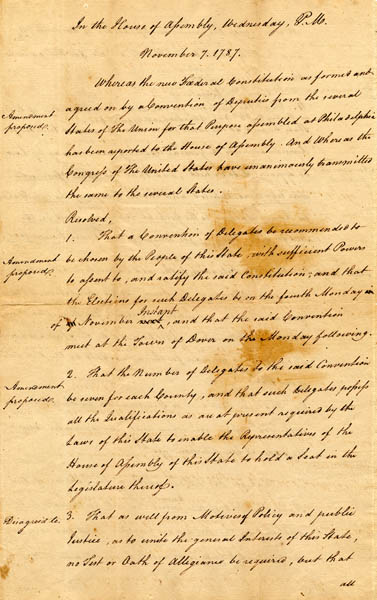 In the House of Assembly, Wednesday, P.M.
November 7. 1787.
Whereas the new Fœderal Constitution as formed and
Amendment proposed.
agreed on by a Convention of Deputies from the several
States of The Union for that Purpose assembled at Philadelphia
has been reported to the House of Assembly. And Whereas the
Congress of The United States have unanimously transmitted
the same to the several States.
Resolved,
1. That a Convention of Delegates be recommended to
Amendment proposed.
be chosen by the People of this State, with sufficient Powers
to assent to, and ratify the said Constitution; and that
the Elections for such Delegates be on the fourth Monday in
of November Instant, and that the said Convention
meet at the Town of Dover on the Monday following.
2. That the Number of Delegates to the said Convention
Amendment proposed.
be seven for each County, and that such Delegates possess
all the Qualifications as are at present required by the
Laws of this State to enable the Representatives of the
House of Assembly of this State to hold a Seat in the
Legislature thereof.
Disagreed to.
3. That as well from Motives of Policy and public
Justice, as to unite the general Interests of this State,
no Test or Oath of Allegiance be required, but that
all